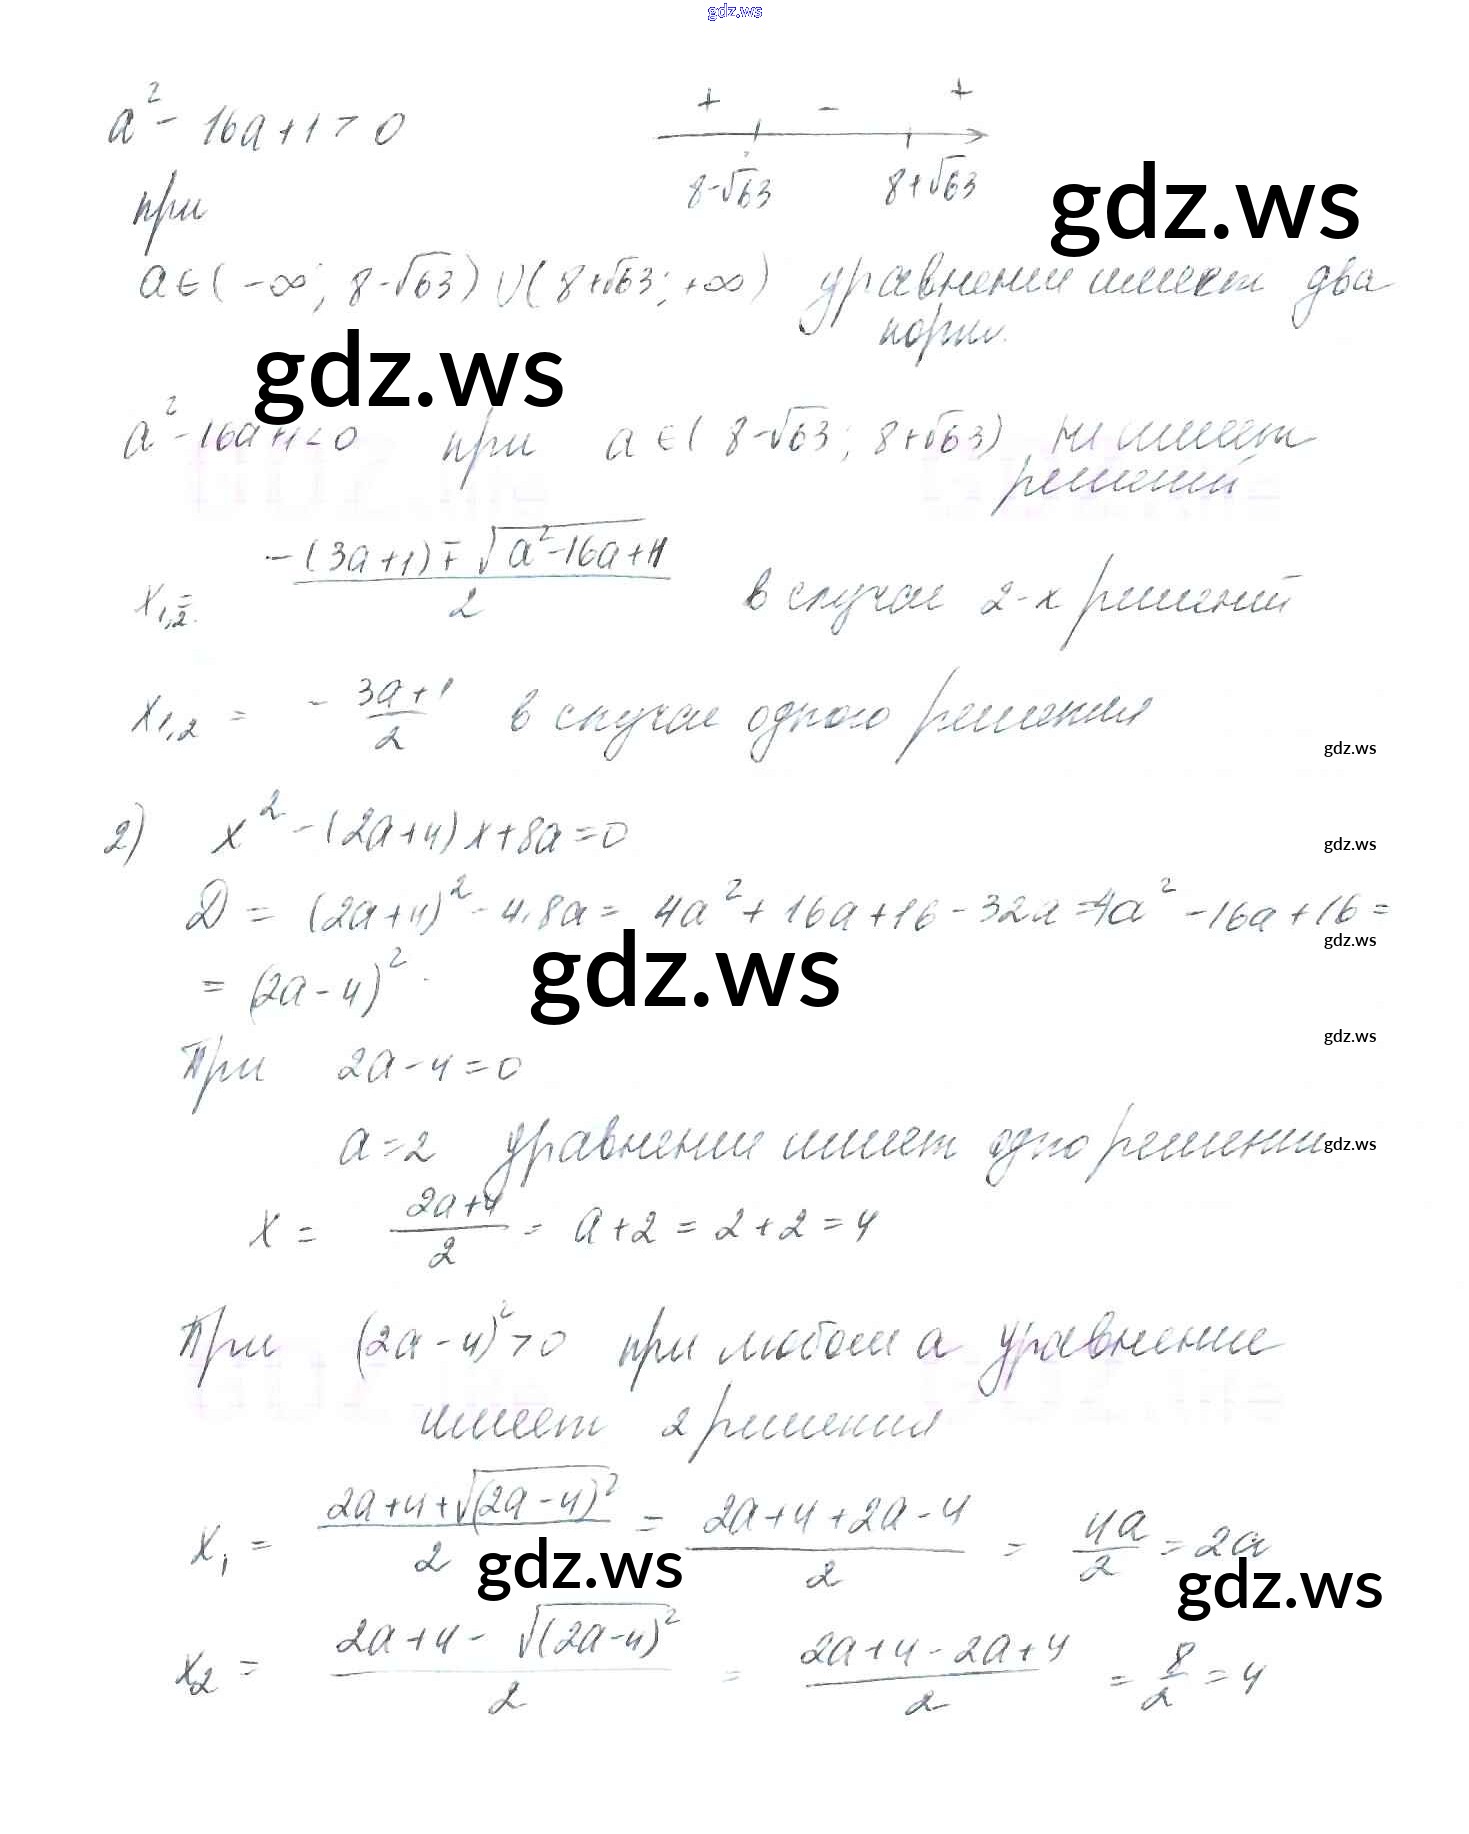 gdz.ws
a² - 16a + 1 > 0
+ - +
8-√63 8+√63
gdz.ws
при
a ∈ (-∞; 8-√63) ∪ (8+√63; +∞) уравнении имеет два
корни.
gdz.ws
a² - 16a + 1 < 0 при a ∈ (8-√63; 8+√63) не имеет
решений
x₁,₂ = (-(3a+1) ∓ √(a²-16a+1))/2 в случае 2-х решений
x₁,₂ = - (3a+1)/2 в случае одного решения
gdz.ws
2) x² - (2a+4)x + 8a = 0
gdz.ws
D = (2a+4)² - 4·8a = 4a² + 16a + 16 - 32a = 4a² - 16a + 16 =
gdz.ws
= (2a-4)²
gdz.ws
При 2a - 4 = 0
gdz.ws
a = 2 уравнение имеет одно решение
gdz.ws
x = (2a+4)/2 = a + 2 = 2 + 2 = 4
При (2a-4)² > 0 при любом a уравнение
имеет 2 решения
x₁ = (2a+4+√(2a-4)²)/2 = (2a+4+2a-4)/2 = 4a/2 = 2a
gdz.ws
gdz.ws
x₂ = (2a+4-√(2a-4)²)/2 = (2a+4-2a+4)/2 = 8/2 = 4